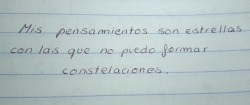 Mis pensamientos son estrellas
con las que no puedo formar
constelaciones.